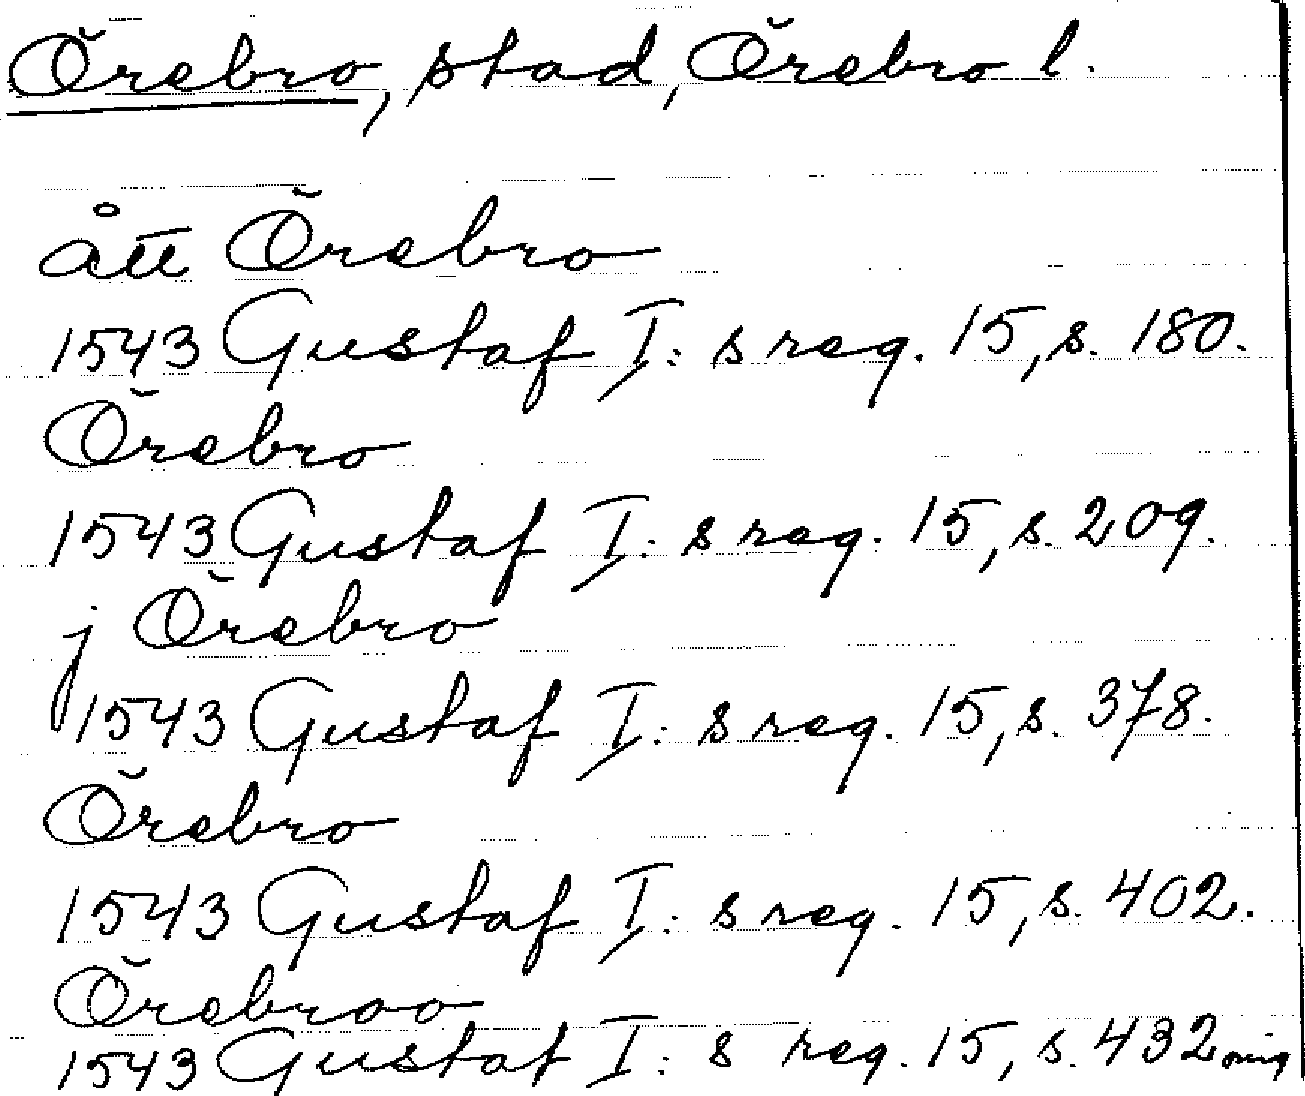 Örebro, stad, Örebro l.
ått Örebro
1543 Gustaf I:s reg. 15, s. 180.
Örebro
1543 Gustaf I:s reg. 15, s. 209.
j Örebro
1543 Gustaf I:s reg. 15, s. 378.
Örebro
1543 Gustaf I:s reg. 15, s. 402.
Örebroo
1543 Gustaf I:s reg. 15, s. 432